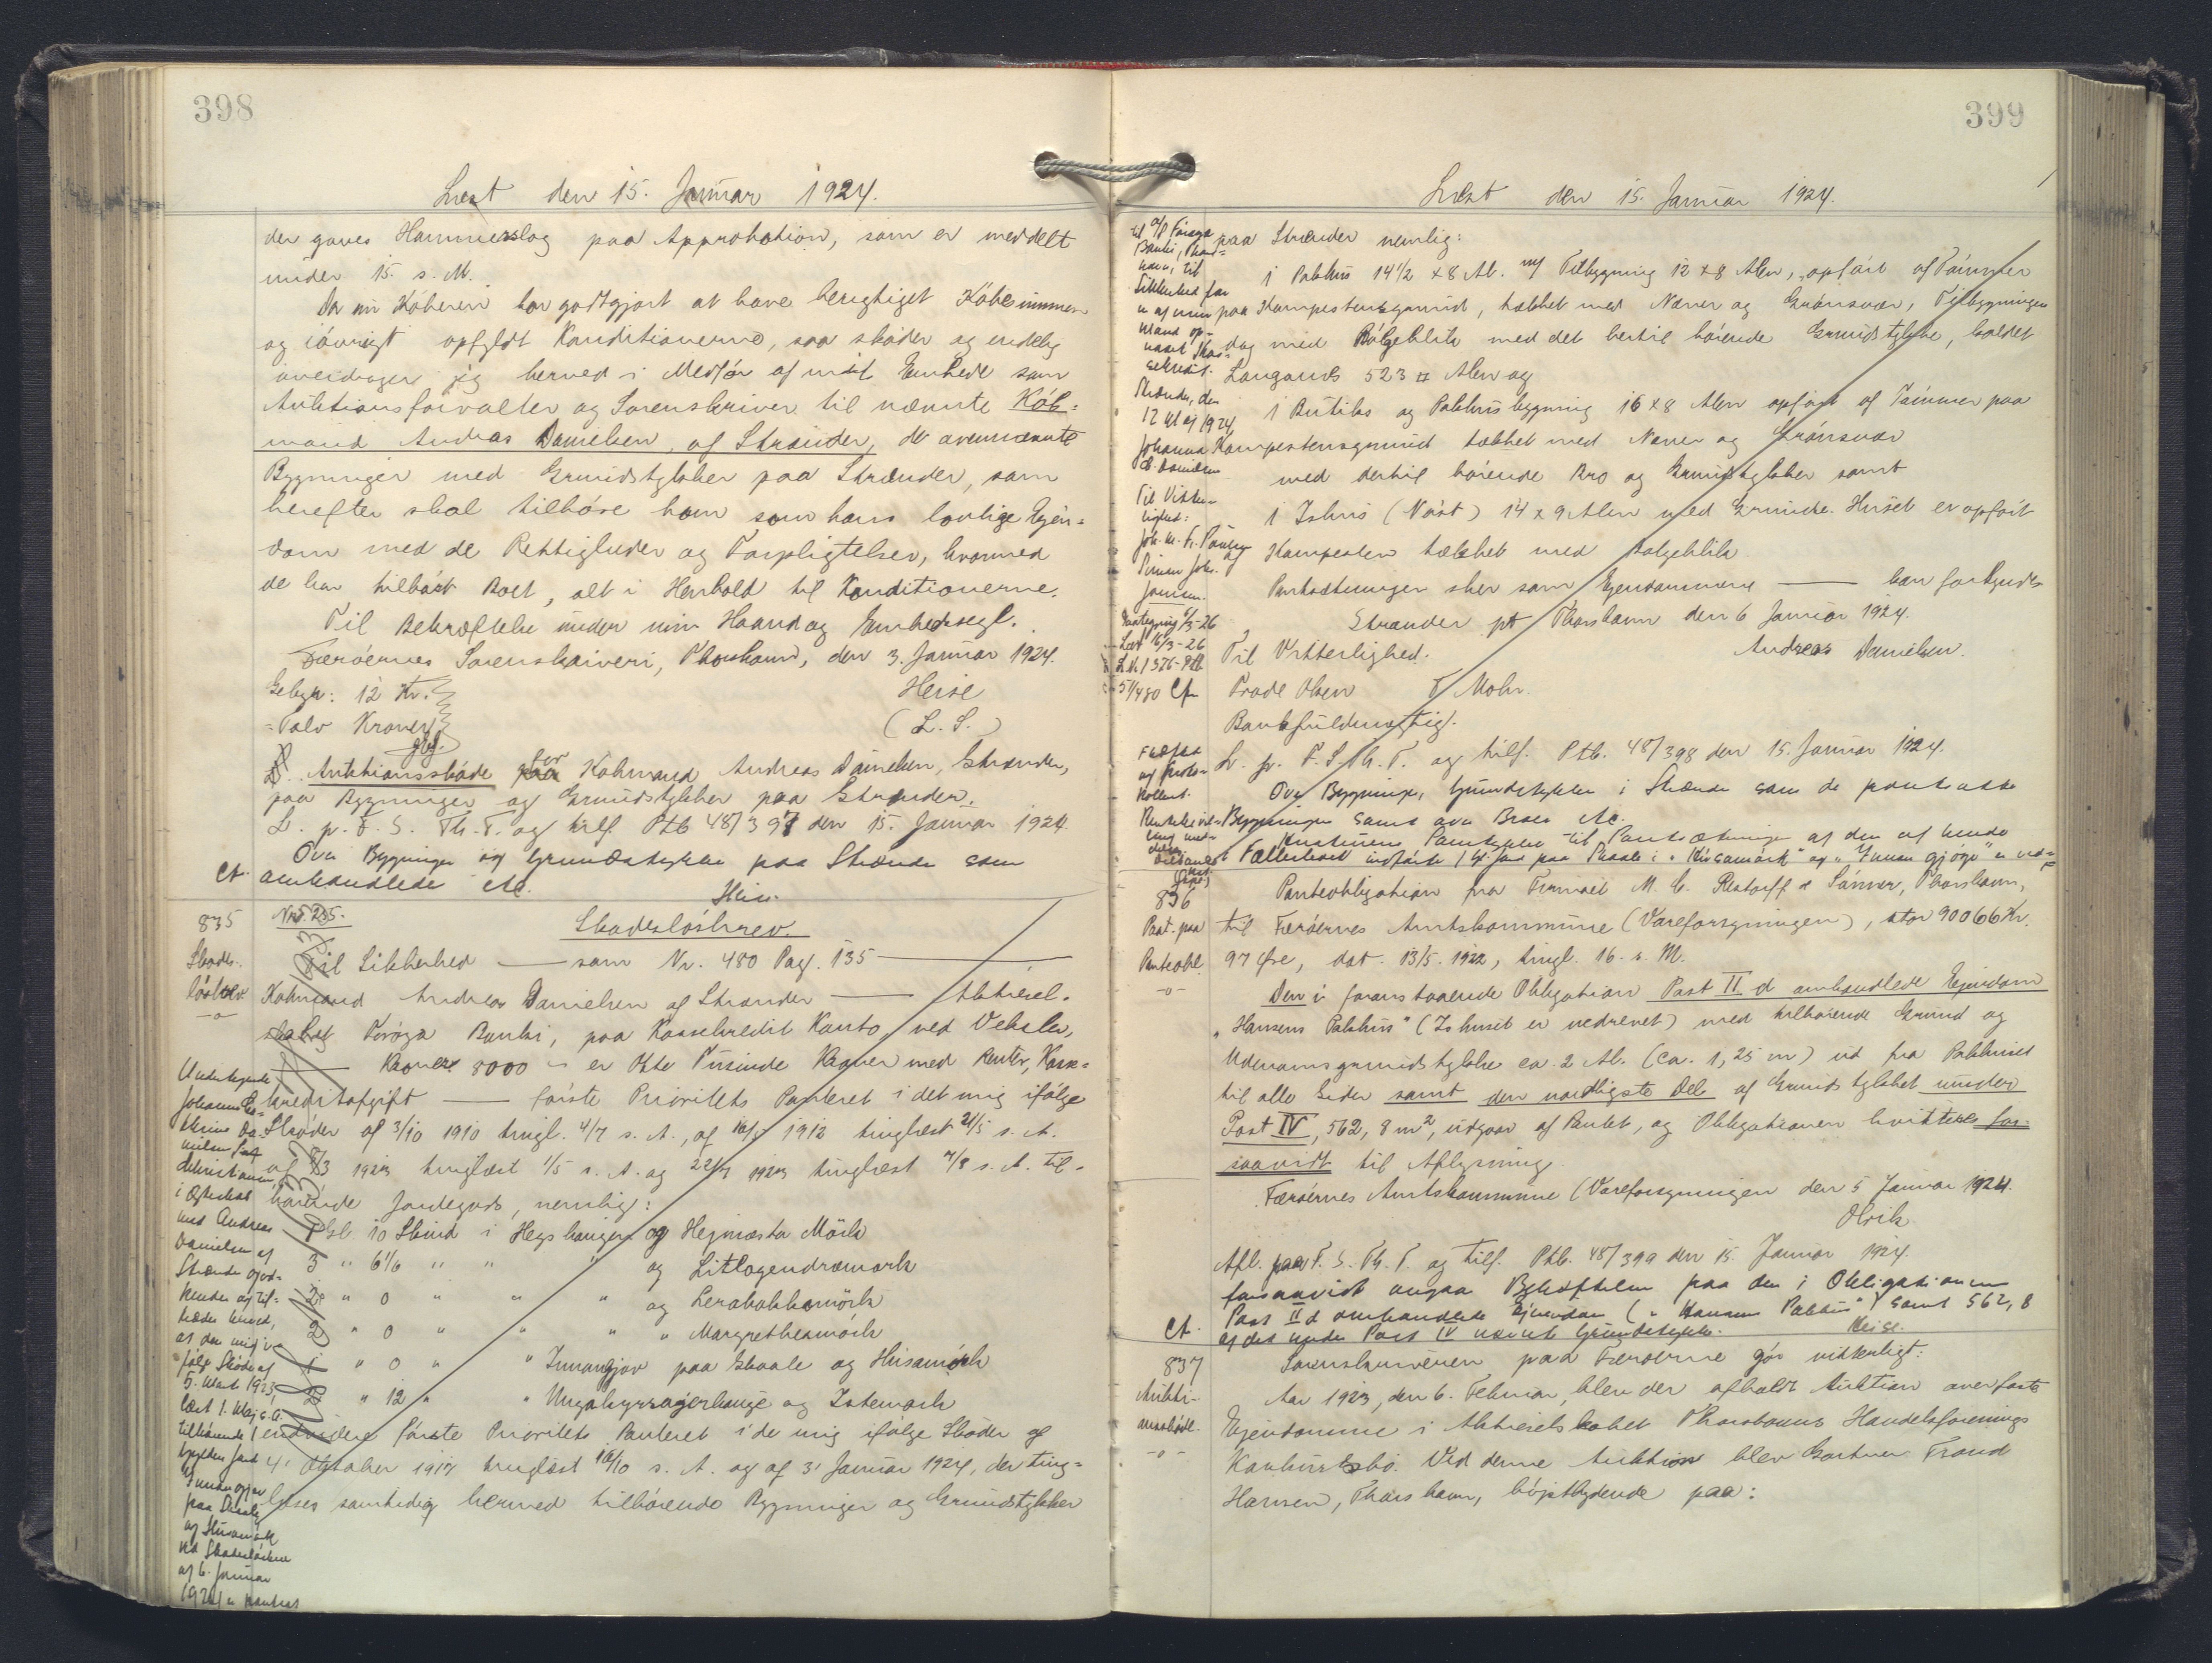 398
Læst den 15. Januar 1924.
der gaves Hammerslag paa Approbation, som er meddelt
under 15. s. M.
Da nu Köberen har godtgjort at have berigtiget Købesummen
og iövrigt opfyldt Konditionerne, saa skøder og endelig
overdrager jeg herved i Medfør af mit Embede som
Auktionsforvalter og Sorenskriver til nævnte Köb=
mand Andreas Danielsen, af Strænder, de ovennævnte
Bygninger med Grundstykker paa Strænder, som
herefter skal tilhöre ham som hans lovlige Ejen=
dom med de Rettigheder og Forpligtelser, hvormed
de har tilhört Boet, alt i Henhold til Konditionerne.
Til Bekræftelse under min Haand og Embedssegl.
Færöernes Sorenskriveri, Thorshavn, den 3. Januar 1924.
Gebyr: 12 Kr.
Heise
= Tolv Kroner
(L. S.)
Auktionsskøde for Købmand Andreas Danielsen, Strænder,
paa Bygninger og Grundstykker paa Strænder.
L. p. F. S. Th. T. og tilf. Ptb 48/397 den 15. Januar 1924.
Over Bygninger og Grundstykker paa Strænder som
omhandlede etc.
Heise.
Ct.
835
Skades-
løsbrev.
-o-
Nr. 25.
Skadeslösbrev.
Til Sikkerhed — som Nr. 480 Pag. 135 —
Købmand Andreas Danielsen af Strænder — Aktiesel-
skabet Føroya Banki, paa Kassekredit Konto ved Veksler,
— Kroner 8000 er Otte Tusinde Kroner med Renter, Kasse=
kreditafgift — første Prioritets Panteret i det mig ifølge
Skøder af 3/10 1910 tingl. 4/7 s. A., af 16/5 1912 tinglæst 21/5 s. A.
af 5/3 1923 tinglæst 1/5 s. A. og 22/7 1923 tinglæst 7/8 s. A. til-
hørende Jordegods, nemlig:
10 Skind i Hegshaugen og Hejmasta Mörk
3 " 6 1/6 " " " og Litlagendramork
2 " 0 " " " og Lerabakkamörk
2 " 0 " " " " Margrethesmörk
1 " 0 " " Innangjov paa Skaale og Husamörk
2 " 12 " " Ungakyrragerhauge og Istemark
endvidere første Prioritets Panteret i de mig ifølge Skøder af
4' Oktober 1912 tinglæst 16/10 s. A. og af 3' Januar 1924, der ting=
læses samtidig hermed tilhørende Bygninger og Grundstykker
Undertegnede
Johanne Ca-
thrine Da-
nielsen født
Christiansen,
i Ægteskab
med Andreas
Danielsen af
Strænder god-
kender og til=
træder herved,
at den mig i-
følge Skøde af
5. Marts 1923,
læst 1. Maj s. A.
tilhørende 1
Gylden Jord
Innangjov
paa Skaale
og Husamörk
ved Skadesløsbrev
af 6. Januar
1924 er pantsat
399
Læst den 15. Januar 1924.
til A/S Føroya
Banki, Thors=
havn, til
Sikkerhed for
en af min
Mand op-
taget Kas-
sekredit.
Strænder, den
12 Maj 1924
Johanna
C. Danielsen
Til Vitter-
lighed:
Joh. M. Fr. Poulsen
og
Joensen.
Paategning 6/3-26
Læst 16/3-26
51/480 Ct.
paa Strænder nemlig:
1 Pakhus 14 1/2 x 8 Al. m/ Tilbygning 12 x 8 Alen, opført af Tømmer
paa Kampestensgrund, tækket med Næver og Grönsvær, Tilbygningen
dog med Bölgeblik med det hertil hörende Grundstykke, kaldet
Langanes 523 □ Alen og
1 Butiks og Pakhusbygning 16 x 8 Alen opført af Tömmer paa
Kampestensgrund tækket med Næver og Grönsvær
med dertil hörende Bro og Grundstykker samt
1 Ishus (Nöst) 14 x 9 Alen med Grunde. Huset er opført
af Kampesten tækket med Bølgeblik
Pantsætningen sker som Ejendommene — han forbyndes
Strænder pt Thorshavn den 6 Januar 1924.
Til Vitterlighed.
Andreas Danielsen.
Trode Olsen T Mohr.
Bankfuldmægtig.
L. p. F. S. Th. T. og tilf. Ptb. 48/398 den 15. Januar 1924.
Over Bygninger, Grundstykker i Strænder som de pantsatte
Bygninger samt over Broen etc.
Fællesboet indførte 1 Gl. Jord paa Skaale i "Húsamørk" og "Innan gjógv" er ved=
836
Paat. paa
Panteobl.
-o-
Panteobligation fra Firmaet M. C. Restorff & Sønner, Thorshavn,
til Færöernes Amtskommune (Vareforsyningen), stor 90066 Kr.
97 Øre, dat. 13/5. 1922, tingl. 16. s. M.
Den i foranstaaende Obligation Post II d omhandlede Ejendom
"Hansens Pakhus" (Ishuset er nedrevet) med tilhørende Grund og
Udenomsgrundstykke ca. 2 Al. (ca. 1,25 m) ud fra Pakhuset
til alle Sider samt den nordligste Del af Grundstykket under
Post IV, 562,8 m², udgaar af Pantet, og Obligationen kvitteres for-
saavidt til Aflysning.
Færöernes Amtskommune (Vareforsyningen den 5 Januar 1924.
Olrik
Afl. paa F. S. Th. T. og tilf. Ptb. 48/399 den 15. Januar 1924.
forsaavidt angaa Behæftelsen paa den i Obligationen
Post II d omhandlede Ejendom ("Hansens Pakhus") samt 562,8
af det under Post IV nævnte Grundstykke.
Heise.
Ct.
837
Aukti-
onsskøde.
-o-
Sorenskriveren paa Færöerne gör vitterligt:
Aar 1923, den 6. Februar, blev der afholdt Auktion over faste
Ejendomme i Aktieselskabet Thorshavns Handelsforenings
Konkursbo. Ved denne Auktion blev Gartner Trond
Hansen, Thorshavn, højstbydende paa: